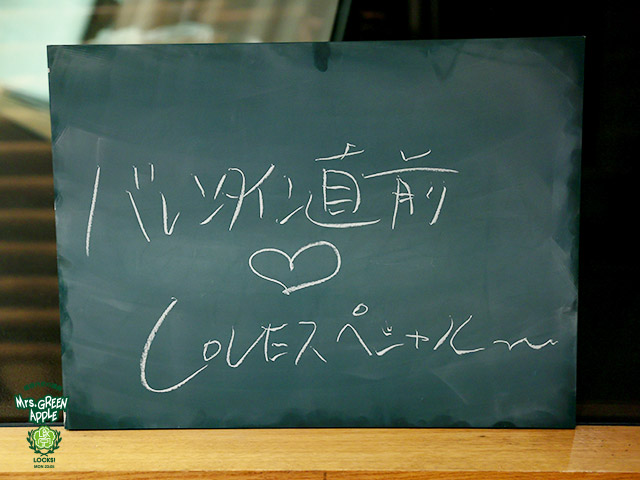 バレンタイン直前
♡
LOVEスペシャル〜
Mrs. GREEN
APPLE
LOCKS!
MON 23:05